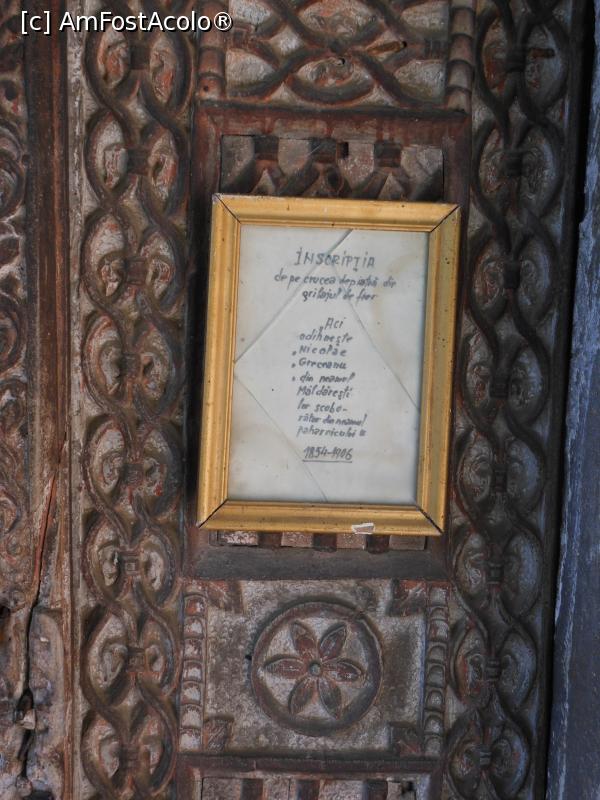 [c] AmFostAcolo®
ÎNSCRIPŢIA
de pe crucea de piatră din
grilajul de fier
„Aci
odihneşte
„Nicolae
„Greceanu
„din neamul
Măldăreşti
lor scobo-
râtor din neamul
paharnicului"
1854-1906